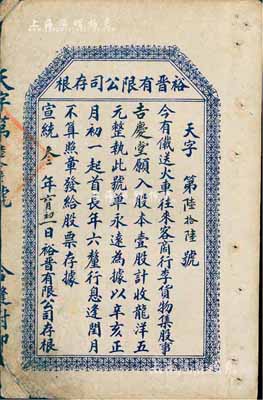 裕晋有限公司存根
天字 第陸拾陸號
今有儀送火車往來客商行李貨物集股事
吉慶堂願入股本壹股計收龍洋五
元整執此號單永遠為據以辛亥正
月初一起首長年六釐行息逢閏月
不算照單發給股票存據
宣統叁年貳月初一日裕晋有限公司存根
天字第陸拾陸號